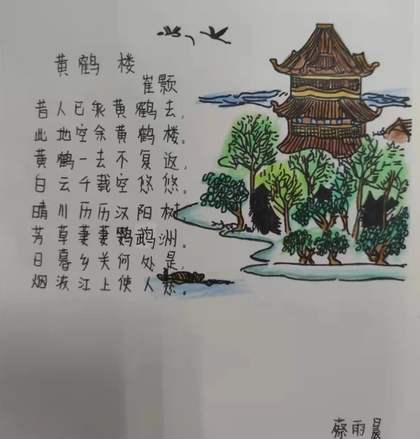 黄鹤楼
崔颢
昔人已乘黄鹤去，
此地空余黄鹤楼。
黄鹤一去不复返，
白云千载空悠悠。
晴川历历汉阳树
芳草萋萋鹦鹉洲。
日暮乡关何处是，
烟波江上使人愁。
蔡雨晨